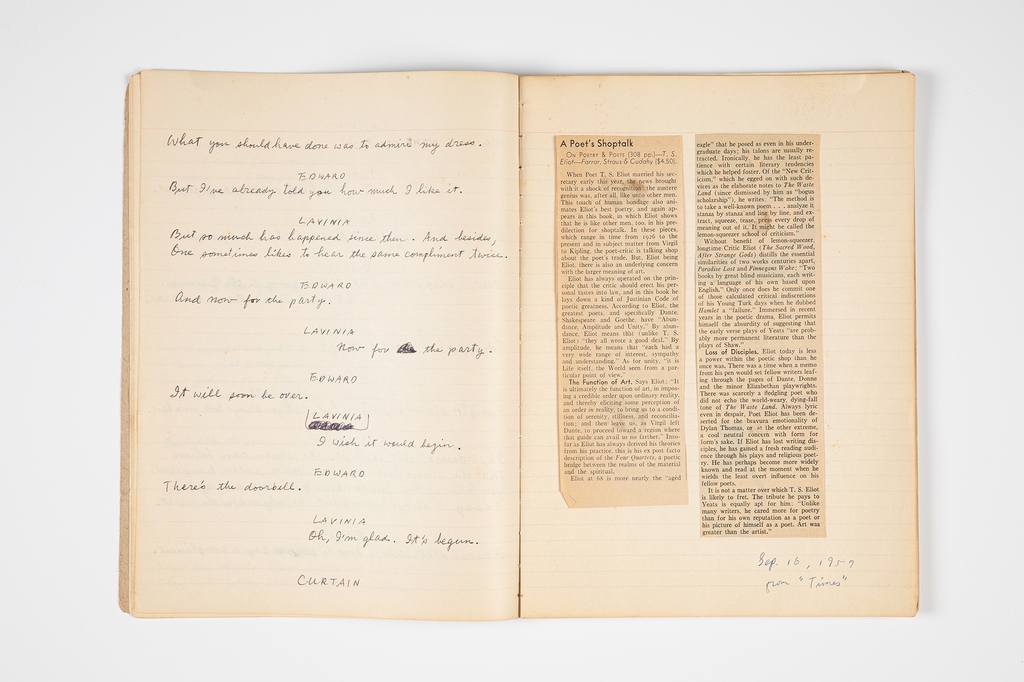 What you should have done was to admire my dress.
EDWARD
But I've already told you how much I like it.
LAVINIA
But so much has happened since then. And besides,
One sometimes likes to hear the same compliment twice.
EDWARD
And now for the party.
LAVINIA
Now for the party.
EDWARD
It will soon be over.
LAVINIA
I wish it would begin.
EDWARD
There's the doorbell.
LAVINIA
Oh, I'm glad. It's begun.
CURTAIN
A Poet's Shoptalk
ON POETRY & POETS (308 pp.)—T. S.
Eliot—Farrar, Straus & Cudahy ($4.50).
When Poet T. S. Eliot married his sec-
retary early this year, the news brought
with it a shock of recognition: the austere
genius was, after all, like unto other men.
This touch of human bondage also ani-
mates Eliot's best poetry, and again ap-
pears in this book, in which Eliot shows
that he is like other men, too, in his pre-
dilection for shoptalk. In these pieces,
which range in time from 1926 to the
present and in subject matter from Virgil
to Kipling, the poet-critic is talking shop
about the poet's trade. But, Eliot being
Eliot, there is also an underlying concern
with the larger meaning of art.
Eliot has always operated on the prin-
ciple that the critic should erect his per-
sonal tastes into law, and in this book he
lays down a kind of Justinian Code of
poetic greatness. According to Eliot, the
greatest poets, and specifically Dante,
Shakespeare and Goethe, have "Abun-
dance, Amplitude and Unity." By abun-
dance, Eliot means that (unlike T. S.
Eliot) "they all wrote a good deal." By
amplitude, he means that "each had a
very wide range of interest, sympathy
and understanding." As for unity, "it is
Life itself, the World seen from a par-
ticular point of view."
The Function of Art. Says Eliot: "It
is ultimately the function of art, in impos-
ing a credible order upon ordinary reality,
and thereby eliciting some perception of
an order is reality, to bring us to a condi-
tion of serenity, stillness, and reconcilia-
tion; and then leave us, as Virgil left
Dante, to proceed toward a region where
that guide can avail us no farther." Inso-
far as Eliot has always derived his theories
from his practice, this is his ex post facto
description of the Four Quartets, a poetic
bridge between the realms of the material
and the spiritual.
Eliot at 68 is more nearly the "aged
eagle" that he posed as even in his under-
graduate days; his talons are usually re-
tracted. Ironically, he has the least pa-
tience with certain literary tendencies
which he helped foster. Of the "New Crit-
icism," which he egged on with such de-
vices as the elaborate notes to The Waste
Land (since dismissed by him as "bogus
scholarship"), he writes: "The method is
to take a well-known poem . . . analyze it
stanza by stanza and line by line, and ex-
tract, squeeze, tease, press every drop of
meaning out of it. It might be called the
lemon-squeezer school of criticism."
Without benefit of lemon-squeezer,
longtime Critic Eliot (The Sacred Wood,
After Strange Gods) distills the essential
similarities of two works centuries apart,
Paradise Lost and Finnegans Wake: "Two
books by great blind musicians, each writ-
ing a language of his own based upon
English." Only once does he commit one
of those calculated critical indiscretions
of his Young Turk days when he dubbed
Hamlet a "failure." Immersed in recent
years in the poetic drama, Eliot permits
himself the absurdity of suggesting that
the early verse plays of Yeats "are prob-
ably more permanent literature than the
plays of Shaw."
Loss of Disciples. Eliot today is less
a power within the poetic shop than he
once was. There was a time when a memo
from his pen would set fellow writers leaf-
ing through the pages of Dante, Donne
and the minor Elizabethan playwrights.
There was scarcely a fledgling poet who
did not echo the world-weary, dying-fall
tone of The Waste Land. Always lyric
even in despair, Poet Eliot has been de-
serted for the bravura emotionality of
Dylan Thomas, or at the other extreme,
a cool neutral concern with form for
form's sake. If Eliot has lost writing dis-
ciples, he has gained a fresh reading audi-
ence through his plays and religious poet-
ry. He has perhaps become more widely
known and read at the moment when he
wields the least overt influence on his
fellow poets.
It is not a matter over which T. S. Eliot
is likely to fret. The tribute he pays to
Yeats is equally apt for him: "Unlike
many writers, he cared more for poetry
than for his own reputation as a poet or
his picture of himself as a poet. Art was
greater than the artist."
Sep. 16, 1957
from "Times"